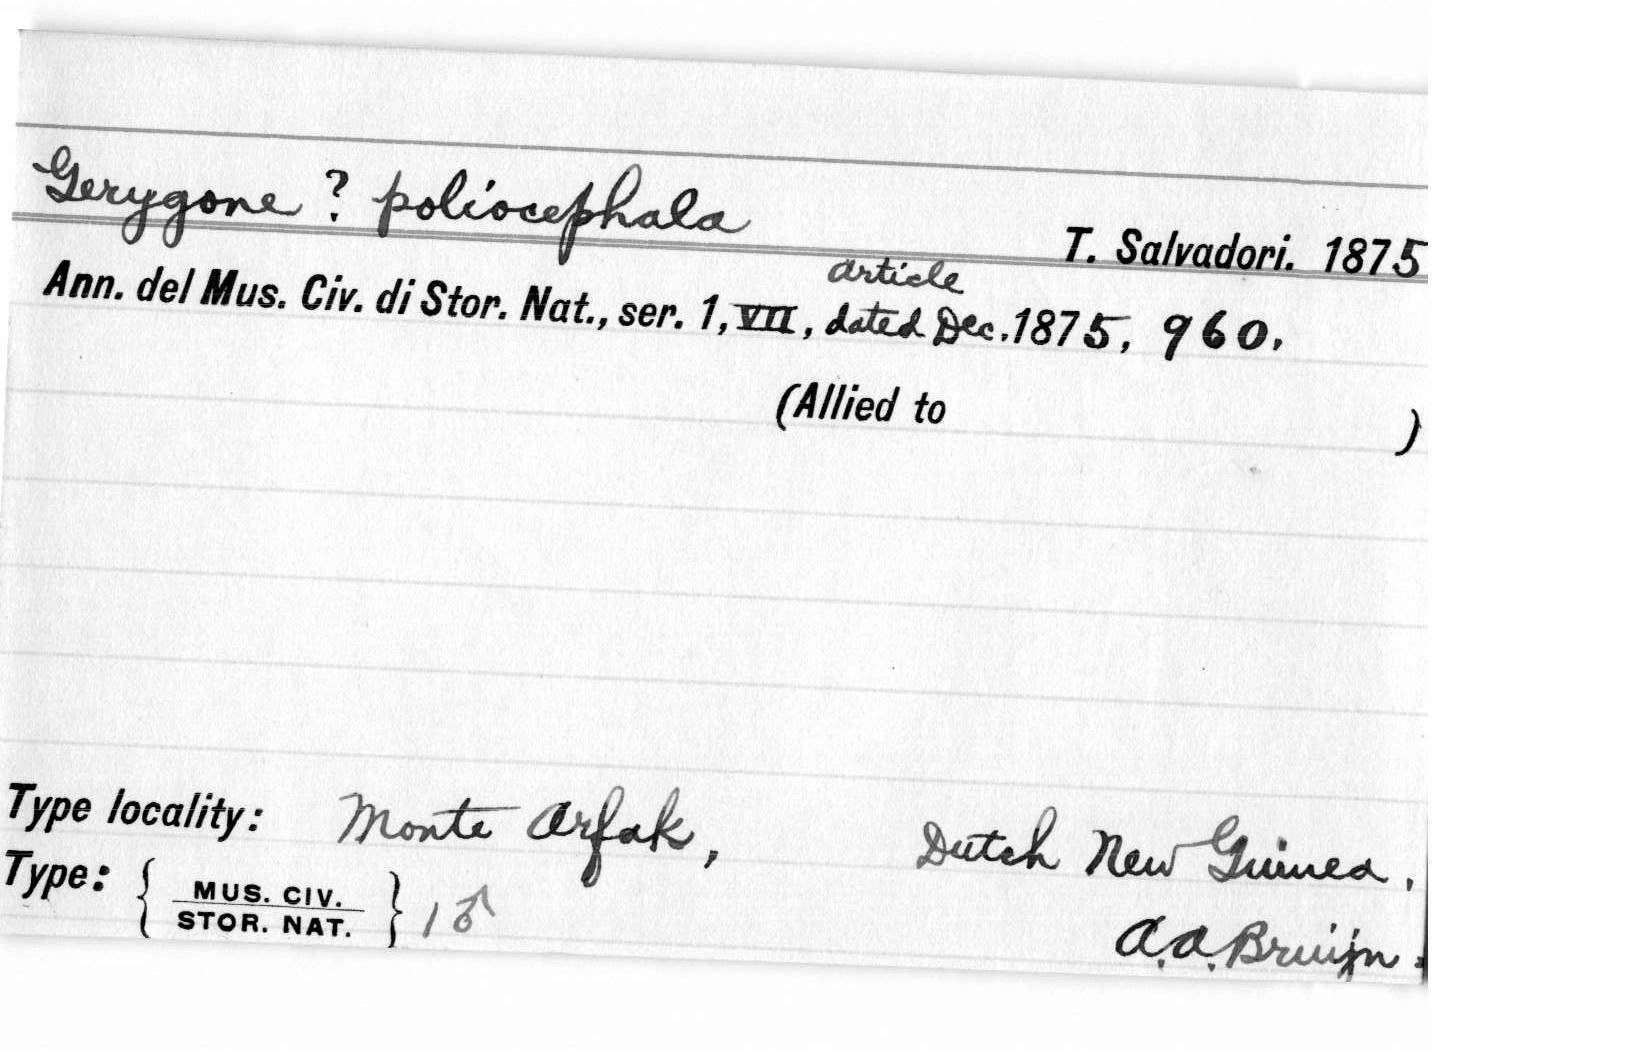 Gerygone ? poliocephala
T. Salvadori. 1875
article
Ann. del Mus. Civ. di Stor. Nat., ser. 1, VII, dated Dec. 1875, 960.
(Allied to )
Type locality: Monte Arfak, Dutch New Guinea.
Type: { MUS. CIV. STOR. NAT. } 1 ♂
A.A. Bruijn.